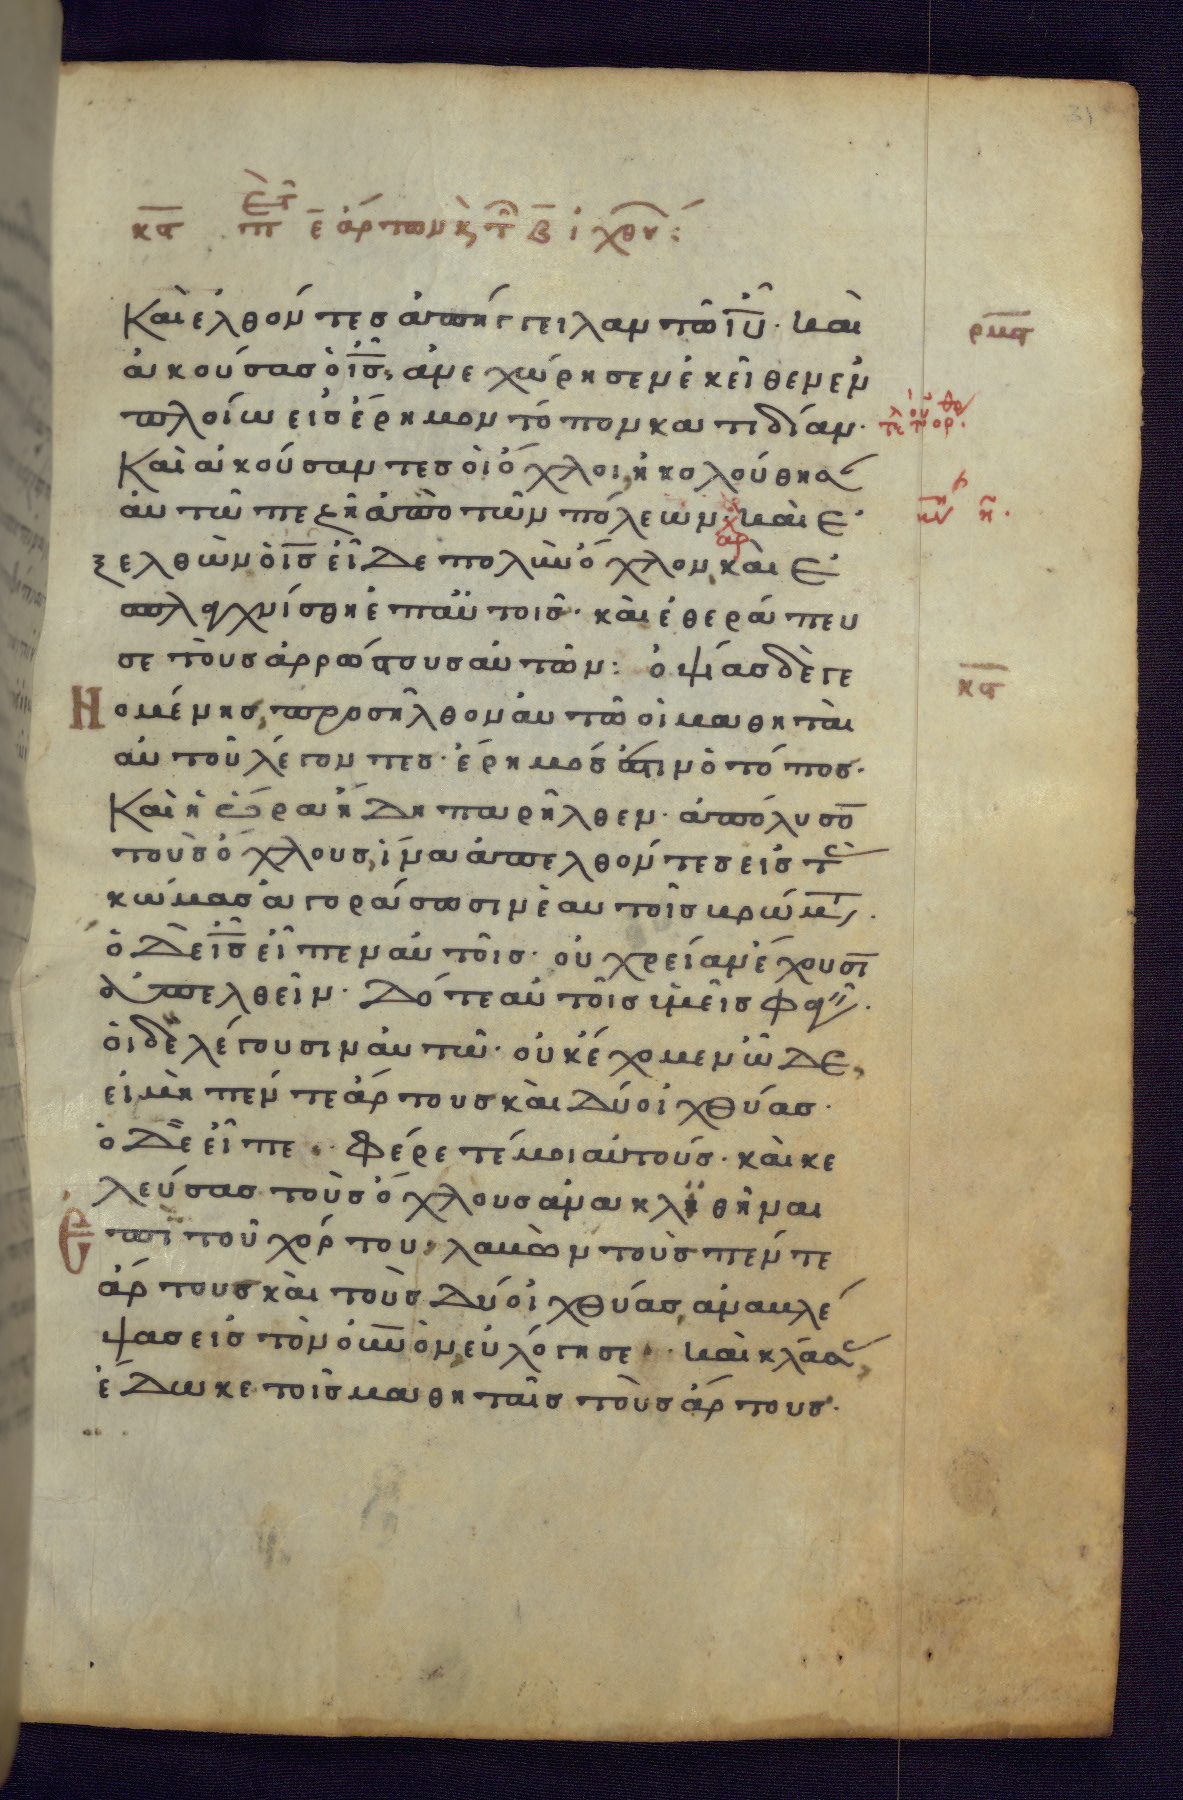 κϛ περὶ τ ε̄ ἄρτων κ τ β̄ ἰχθυ:
Καὶ ἐλθόντες ἀπήγγειλαν τῶ ιῦ· καὶ
ἀκούσας ὁ ις, ἀνεχώρησεν ἐκεῖθεν ἐν
πλοίω εἰς ἔρημον τόπον κατιδίαν·
Καὶ ἀκούσαντες ὁι ὄχλοι, ἠκολούθησ
ἀυτῶ πεζῆ ἀπὸ τῶν πόλεων· καὶ ἐ
ξελθὼν ὁ ις εἶδε πολὺν ὄχλον, καὶ ἐ
σπλαγχνίσθη ἐπ αὐτοῖς· καὶ ἐθεράπευ
σε τοὺς ἀρρώστους αὐτῶν: ὀψίας δὲ γε
νομένης, προσῆλθον ἀυτῶ οἱ μαθηταὶ
ἀυτοῦ λέγοντες· ἔρημός ἐστιν ὁ τόπος·
Καὶ ἡ ὥρα ἤδη παρῆλθεν· ἀπόλυσο
τοὺς ὄχλους, ἵνα ἀπελθόντες εἰς τ
κώμας ἀγοράσωσιν ἑαυτοῖς βρώμ.
ὁ δὲ ις εἶπεν αὐτοῖς· οὐ χρείαν ἔχουσι
ἀπελθεῖν· Δότε αὐτοῖς ὑμεῖς φαγ.
ὁι δὲ λέγουσιν αὐτῶ· οὐκ ἔχομεν ὧδε,
εἰ μὴ πέντε ἄρτους καὶ δύο ἰχθύας·
ὁ δὲ εἶπε· Φέρετέ μοι αὐτοὺς· καὶ κε
λεύσας τοὺς ὄχλους ἀνακληθῆναι
ἐπὶ τοῦ χόρτου, λαβὼν τοὺς πέντε
ἄρτους καὶ τοὺς δύο ἰχθύας, ἀναβλέ
ψας εἰς τὸν ουνὸν εὐλόγησε· καὶ κλάσ,
ἔδωκε τοῖς μαθηταῖς τοὺς ἄρτους·
ρμϛ
κϛ
31